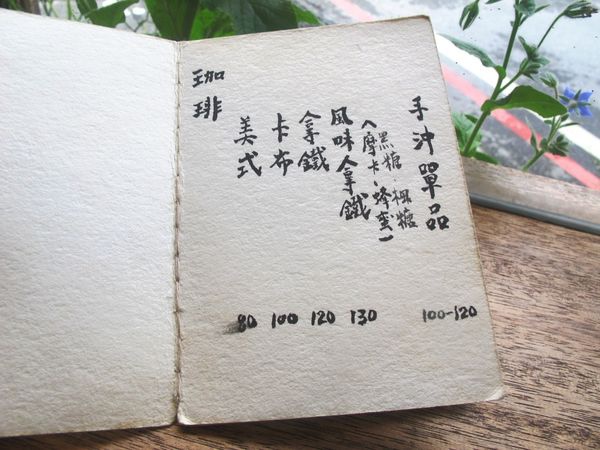 手沖單品
100-120
風味拿鐵
(黑糖.楓糖
摩卡、蜂蜜)
130
拿鐵
120
卡布
100
美式
80
珈琲